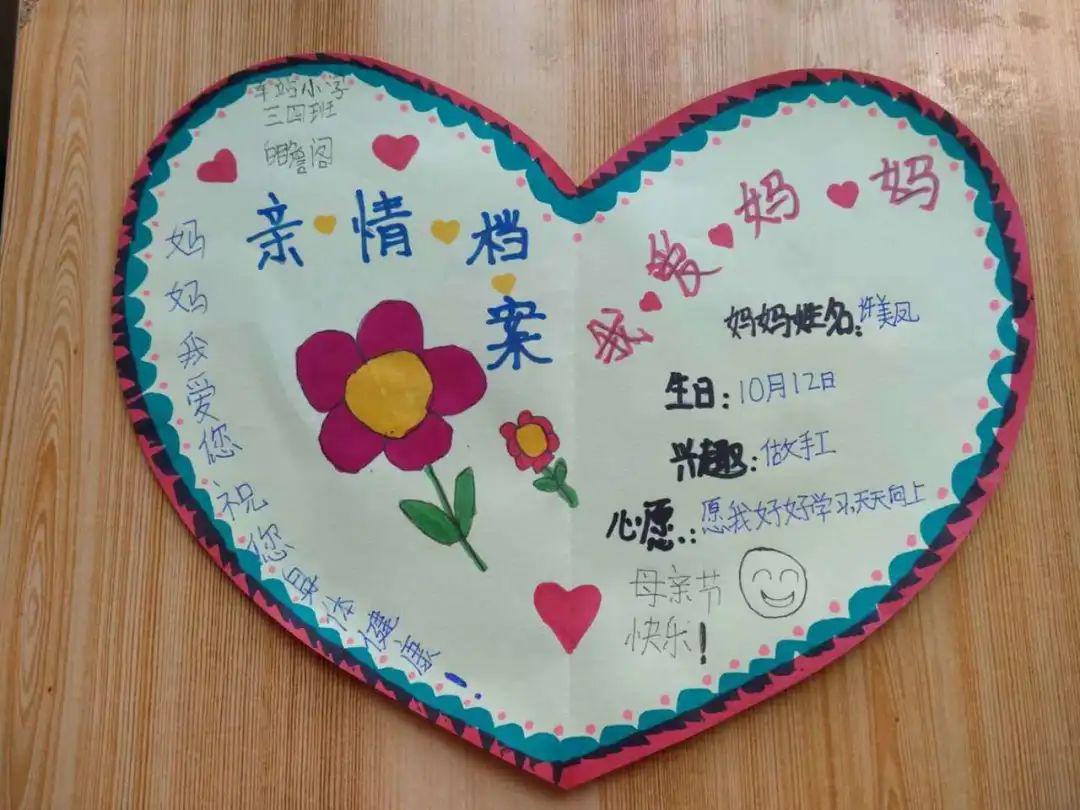 车站小学
三四班
亲情档案
妈妈我爱您祝您身体健康！
我爱妈妈
妈妈姓名：美凤
生日：10月12日
兴趣：做手工
心愿：愿我好好学习天天向上
母亲节
快乐！